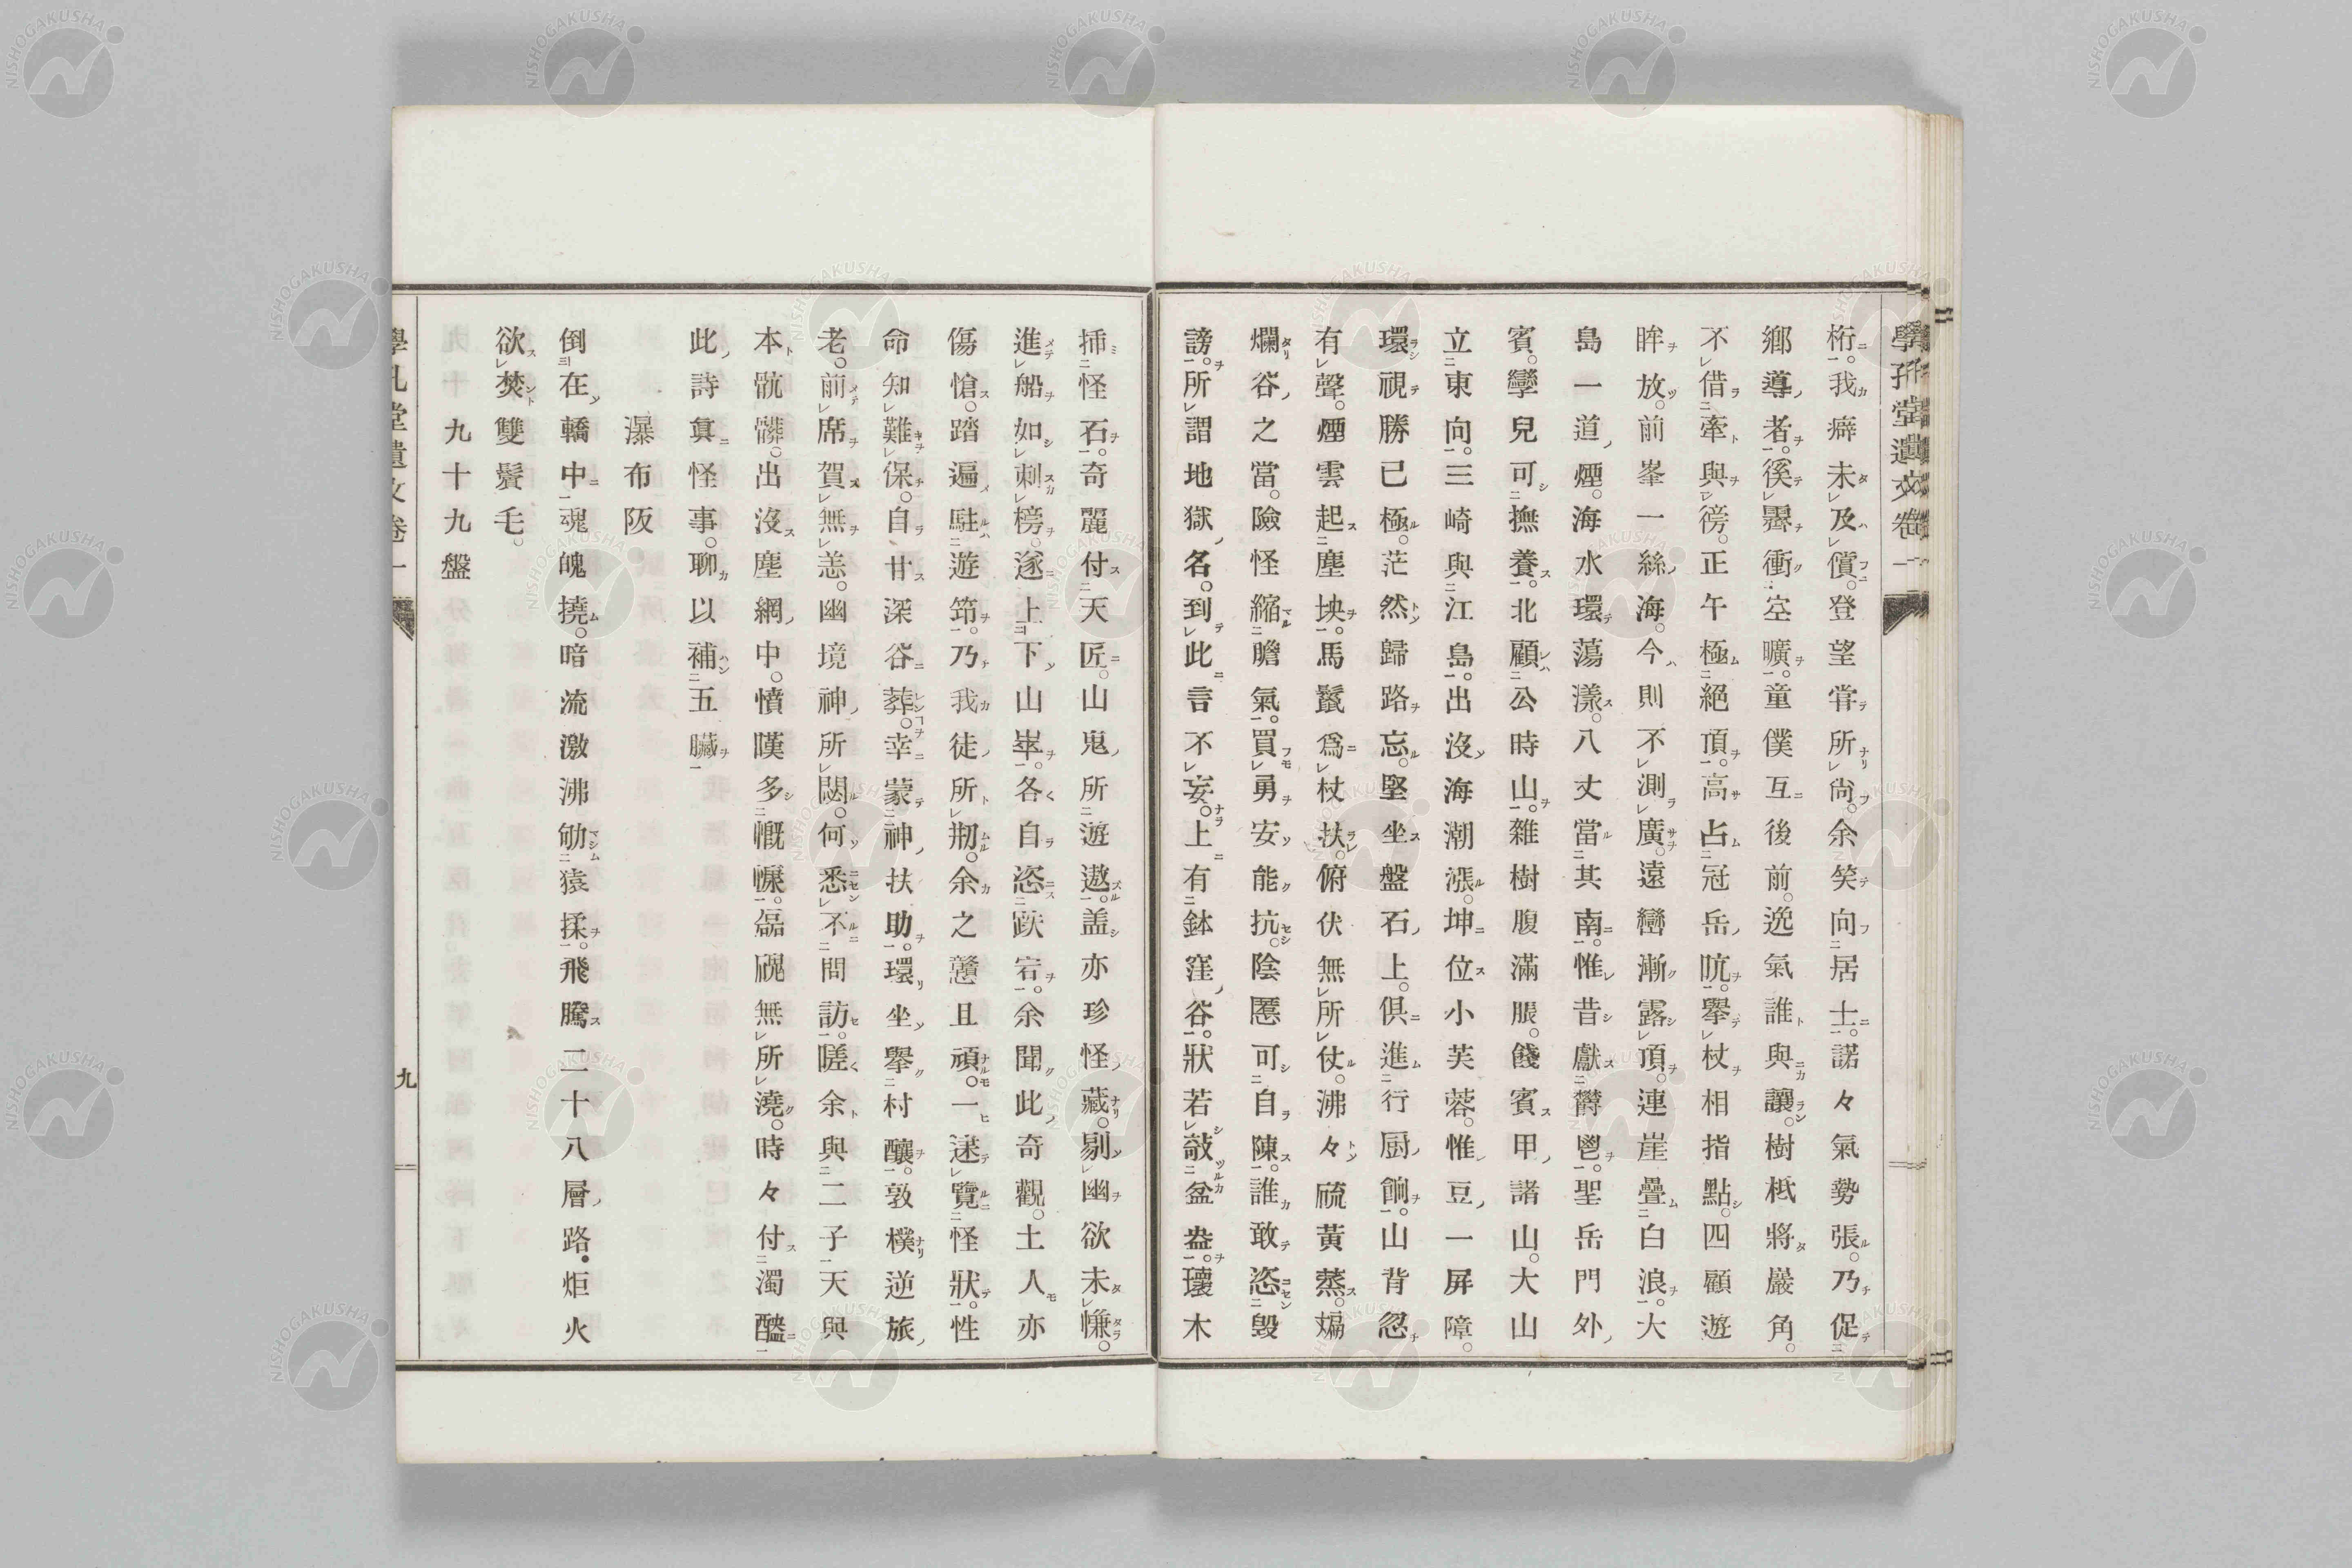 桁。我癖未及償。登望甞所尙。余笑向居士。諾々氣勢張。乃促
鄕導者。徯霽衝空曠。童僕互後前。逸氣誰與讓。樹柢將巖角。
不借牽與徬。正午極絕頂。高占冠岳吭。擧杖相指點。四顧遊
眸放。前峯一絲海。今則不測廣。遠巒漸露頂。連崖疊白浪。大
島一道煙。海水環蕩漾。八丈當其南。惟昔獻欝鬯。聖岳門外
賓。孿兒可撫養。北顧公時山。雜樹腹滿脹。餞賓甲諸山。大山
立東向。三崎與江島。出沒海潮漲。坤位小芙蓉。惟豆一屏障。
環視勝已極。茫然歸路忘。堅坐盤石上。俱進行厨餉。山背忽
有聲。煙雲起塵坱。馬鬣爲杖扶。俯伏無所仗。沸々硫黃蒸。煸
爛谷之當。險怪縮膽氣。買勇安能抗。陰慝可自陳。誰敢恣毀
謗。所謂地獄名。到此言不妄。上有鉢窪谷。狀若敲盆盎。瓌木
揷怪石。奇麗付天匠。山鬼所遊遨。盖亦珍怪藏。剔幽欲未慊。
進船如刺榜。遂上下山崒。各自恣趺宕。余聞此奇觀。土人亦
傷愴。踏遍駐遊筇。乃我徒所剏。余之戇且頑。一迷覽怪狀。性
命知難保。自甘深谷葬。幸蒙神扶助。環坐擧村釀。敦樸逆旅
老。前席賀無恙。幽境神所閟。何悉不問訪。嗟余與二子。天與
本骯髒。出沒塵網中。憤嘆多慨悷。磊磈無所澆。時々付濁醠
此詩眞怪事。聊以補五臟
瀑布阪
倒在轎中魂魄撓。暗流激沸劬猿猱。飛騰二十八層路。炬火
欲焚雙鬢毛。
九十九盤
九